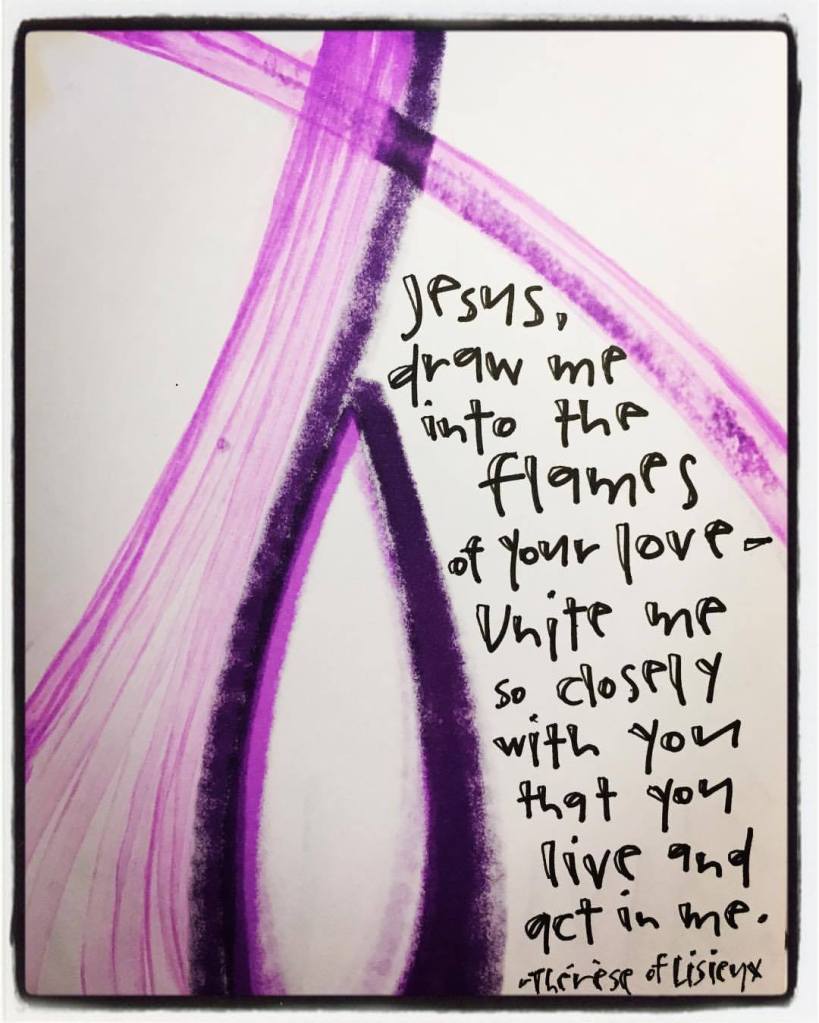 Jesus,
draw me
into the
flames
of your love-
Unite me
so closely
with you
that you
live and
act in me.
-Thérèse of Lisieux